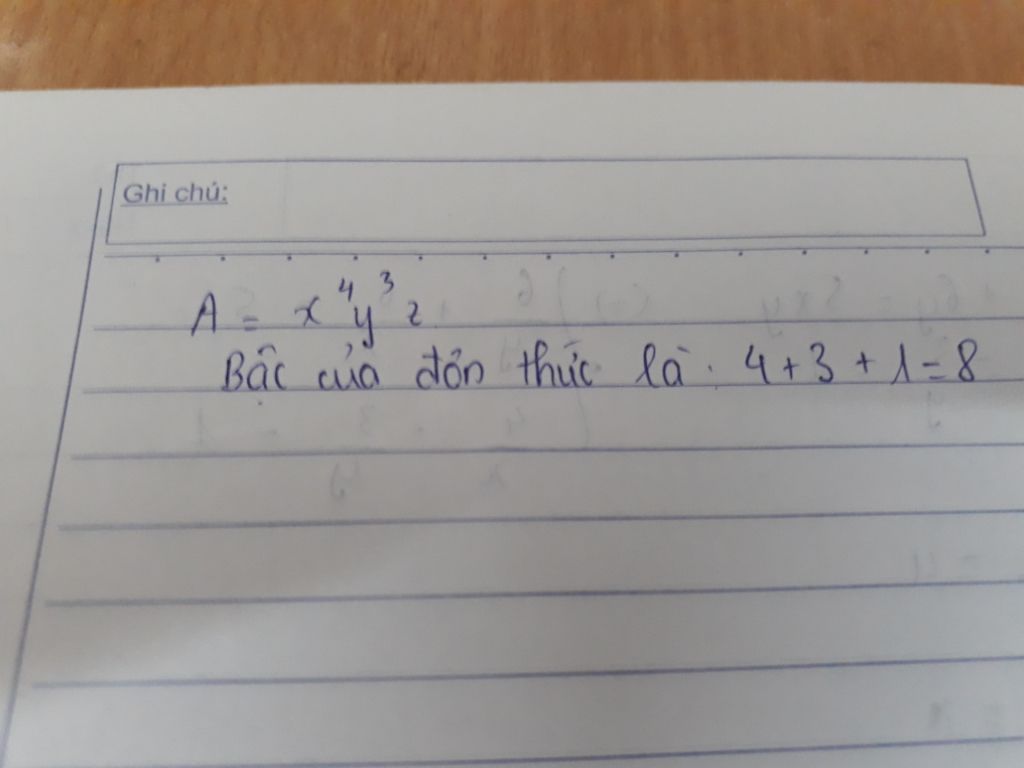 Ghi chú:
A = x⁴y³z
Bậc của đơn thức là: 4+3+1=8